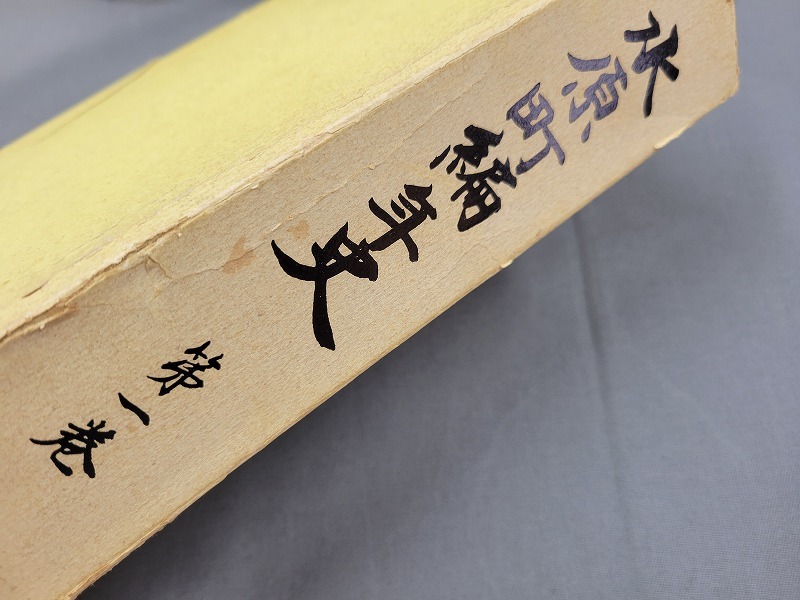 水原町編年史
第一巻